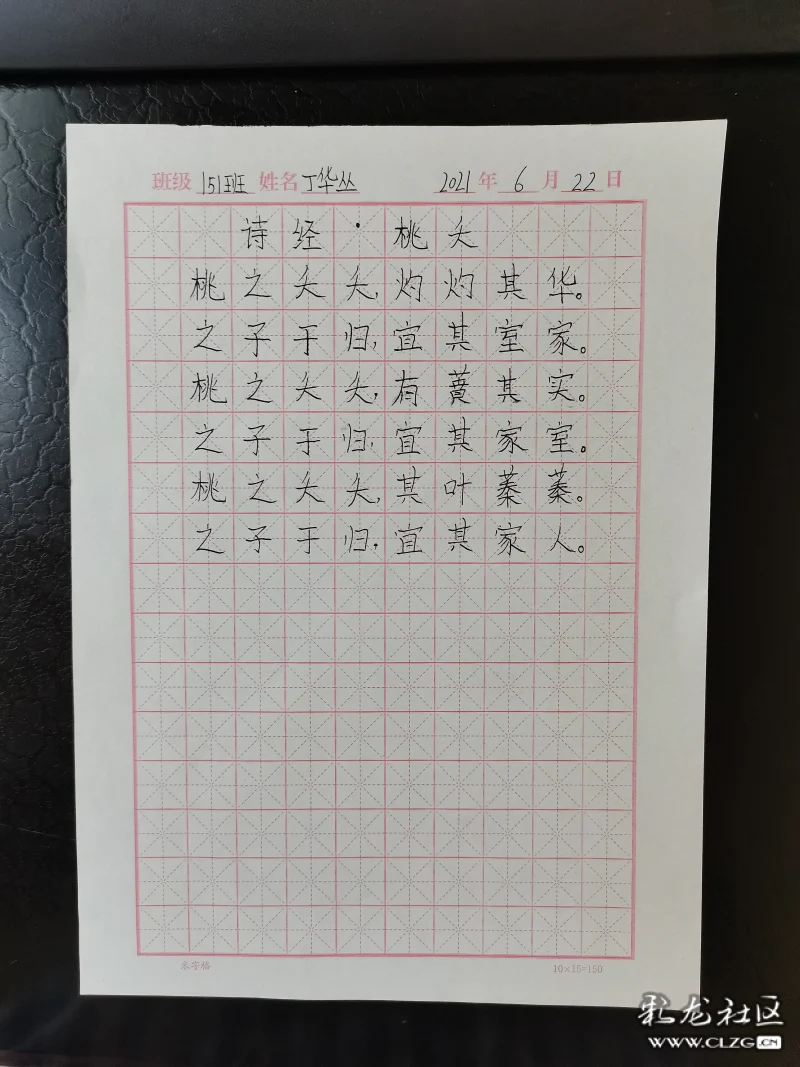 班级 151班 姓名 丁华丛 2021 年 6 月 22 日
诗经·桃夭
桃之夭夭,灼灼其华。
之子于归,宜其室家。
桃之夭夭,有蕡其实。
之子于归,宜其家室。
桃之夭夭,其叶蓁蓁。
之子于归,宜其家人。
米字格 10×15=150
彩龙社区
WWW.CLZG.CN